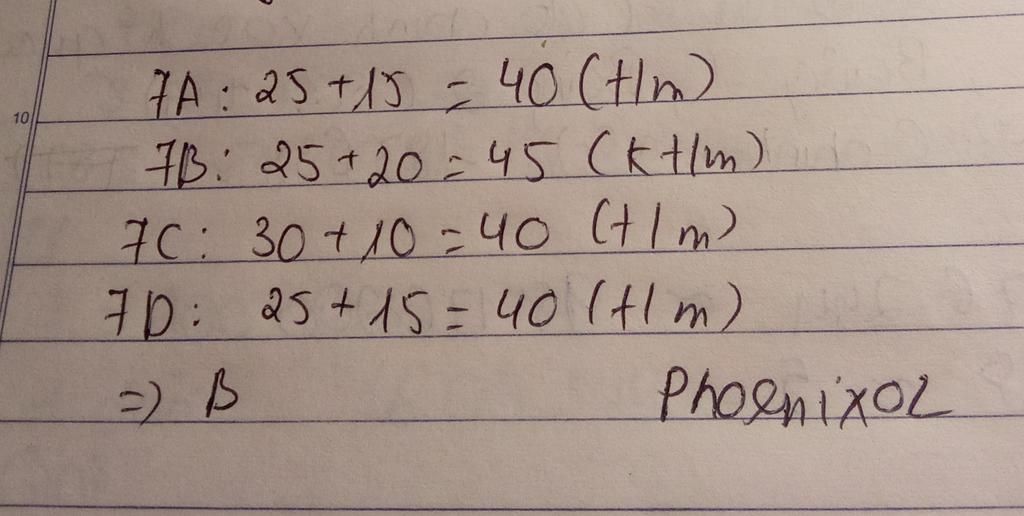 10
7A: 25 + 15 = 40 (t/m)
7B: 25 + 20 = 45 (kt/m)
7C: 30 + 10 = 40 (t/m)
7D: 25 + 15 = 40 (t/m)
=) B
PhoenixOL